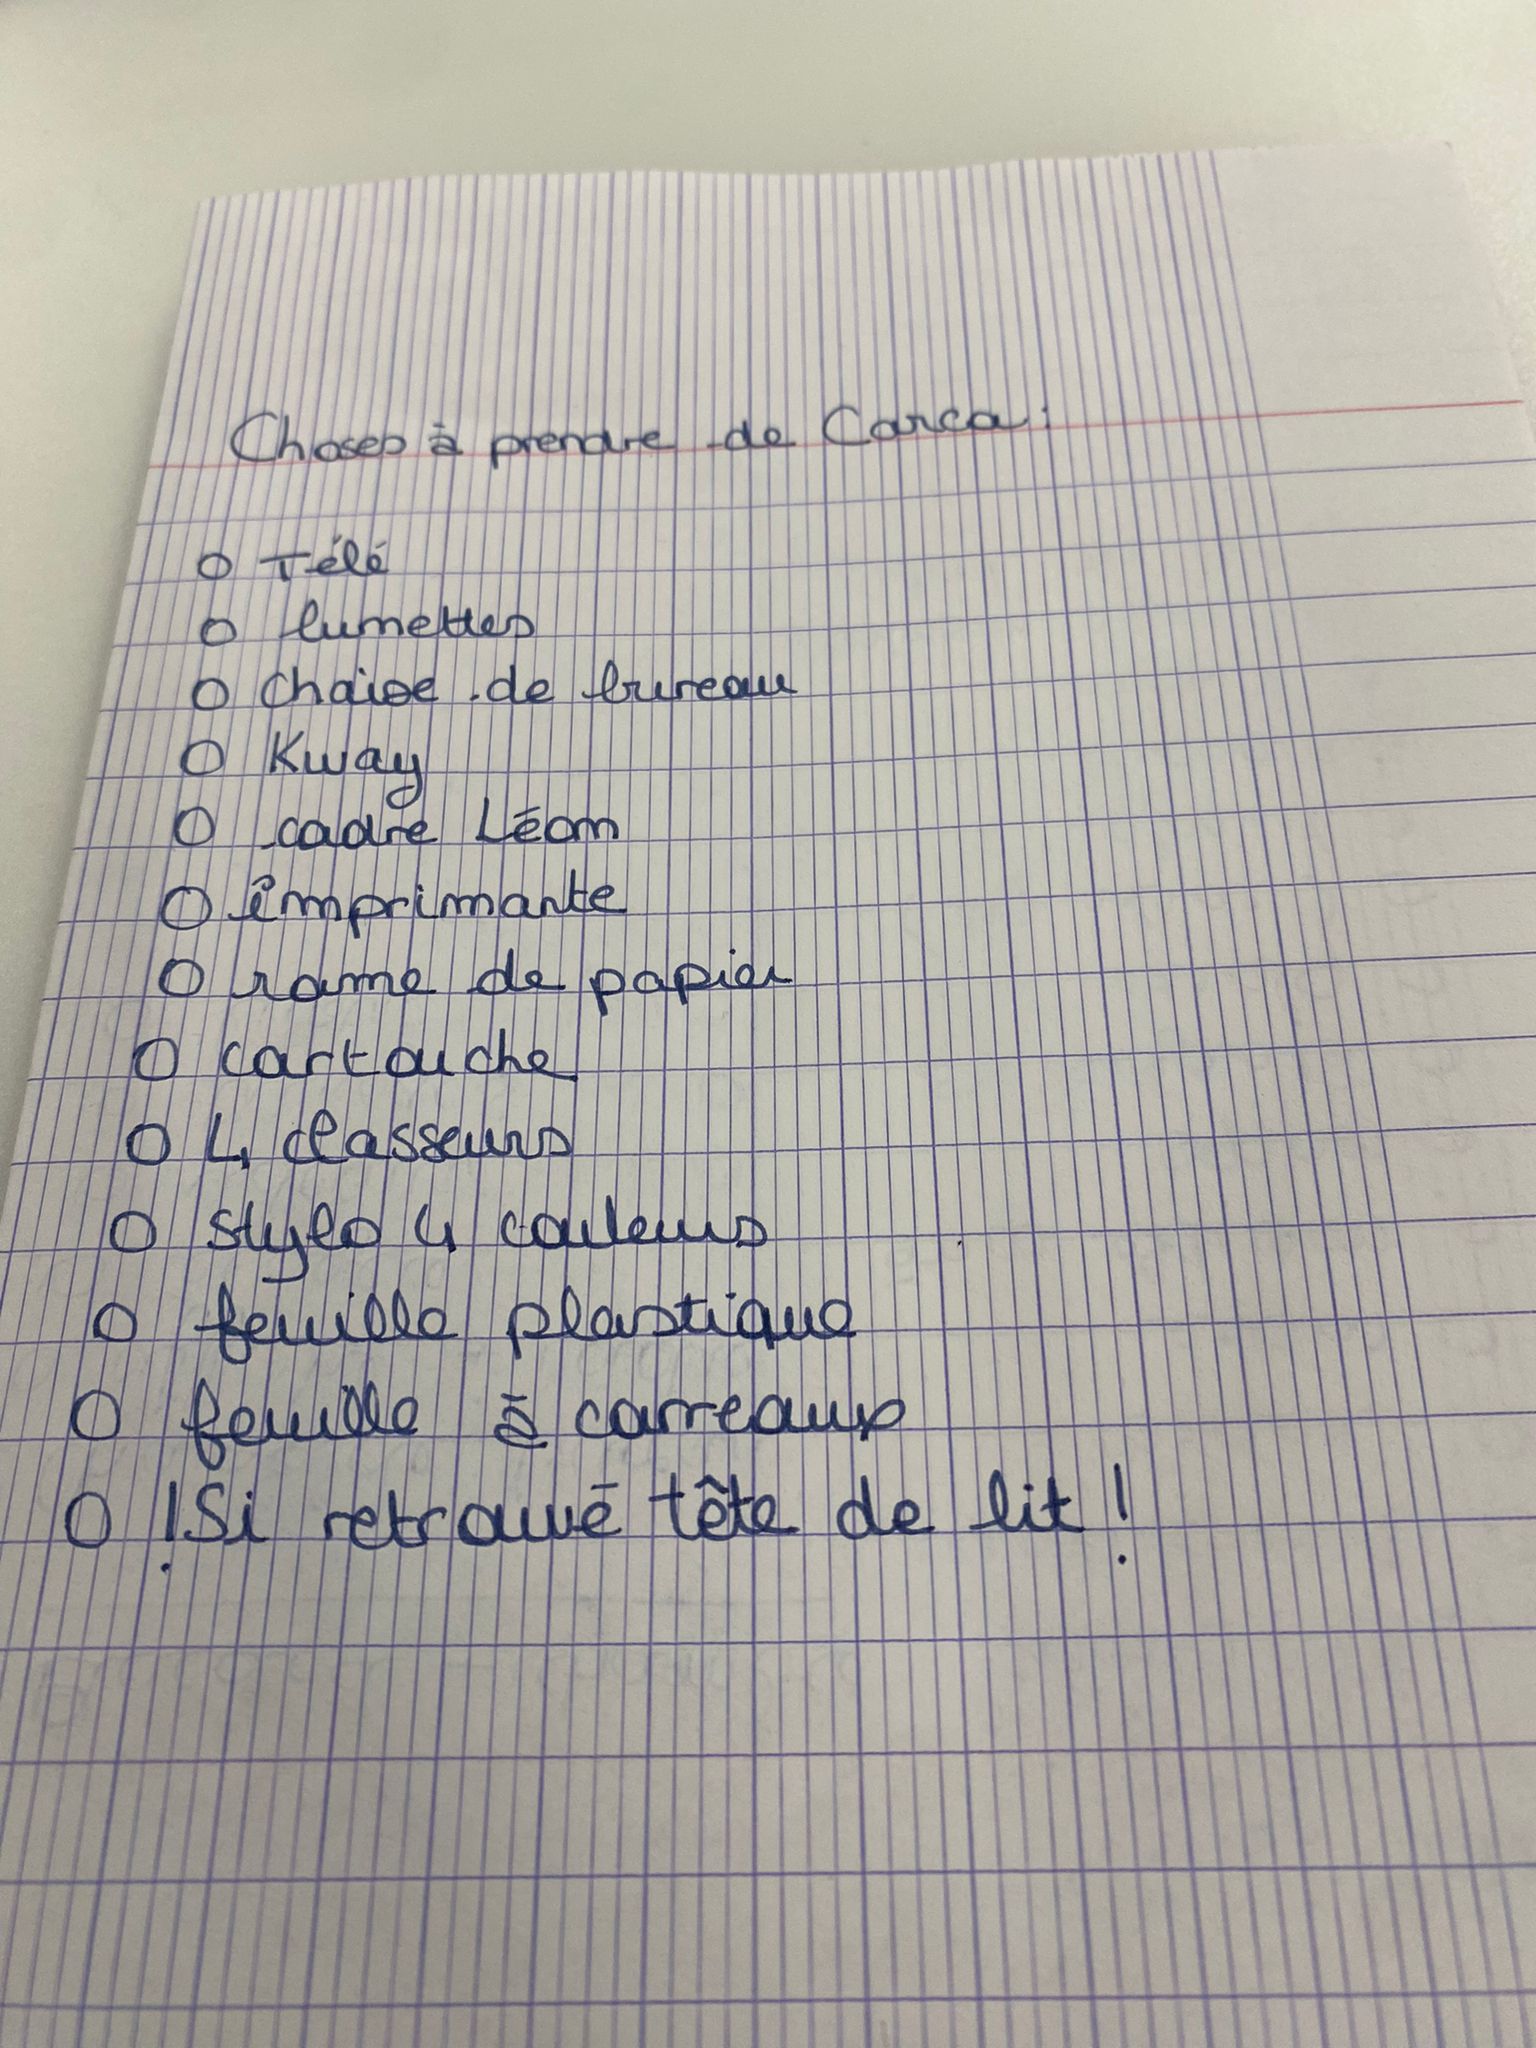 Choses à prendre de Carca :
O Télé
O lunettes
O chaise de bureau
O Kway
O cadre Léon
O imprimante
O rame de papier
O cartouche
O 4 classeurs
O stylo 4 couleurs
O feuille plastique
O feuille à carreaux
O ! Si retrouvé tête de lit !